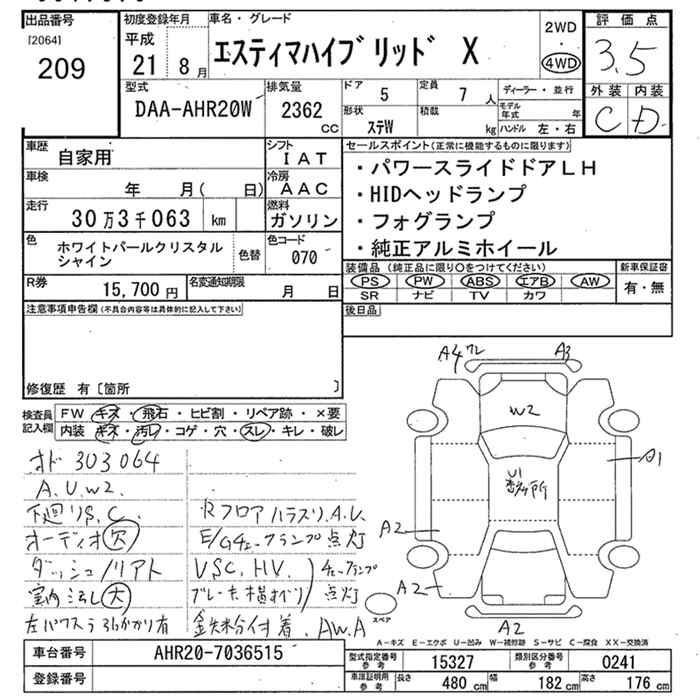 出品番号
[2064]
209
初度登録年月
平成
21 8 月
車名・グレード
エスティマハイブリッド X
2WD
・
4WD
評価点
3.5
外装 内装
C D
型式
DAA-AHR20W
排気量
2362
cc
ドア 5
定員 7 人
ディーラー・並行
形状
ステW
積載
kg
モデル年式 年
ハンドル 左・右
車歴
自家用
シフト
IAT
車検
年 月( 日)
冷房
AAC
走行
30万3千063 km
燃料
ガソリン
色
ホワイトパールクリスタル
シャイン
色替
色コード
070
R券
15,700 円
名変通知期限
月 日
セールスポイント(正常に機能するものに限ります)
・パワースライドドアLH
・HIDヘッドランプ
・フォグランプ
・純正アルミホイール
装備品 (純正品に限り○をつけてください)
PS PW ABS エアB AW
SR ナビ TV カワ
新車保証書
有・無
後日品
注意事項申告欄(不具合内容等は具体的に記入して下さい)
修復歴 有〔箇所 〕
検査員
記入欄
FW キズ・飛石・ヒビ割・リペア跡・×要
内装 キズ・汚レ・コゲ・穴・スレ・キレ・破レ
オド 303064
A.U.W2.
下廻りS.C.
オーディオ欠
ダッシュ/リアト
室内ヨゴレ大
左パワスラ引かかり有
RフロアハラスリA.U.
E/Gチェックランプ点灯
VSC.HV.
ブレーキ
チェックランプ
点灯
鉄粉付着.AW.A
A4 ワレ
A3
W2
U1
A1
A2
A2
A2
スペア
A-キズ E-エクボ U-凹み W-補修跡 S-サビ C-腐食 XX-交換済
車台番号
AHR20-7036515
登録番号
型式指定番号
参考
15327
類別区分番号
参考
0241
車庫証明用
参考
長さ 480 cm
幅 182 cm
高さ 176 cm